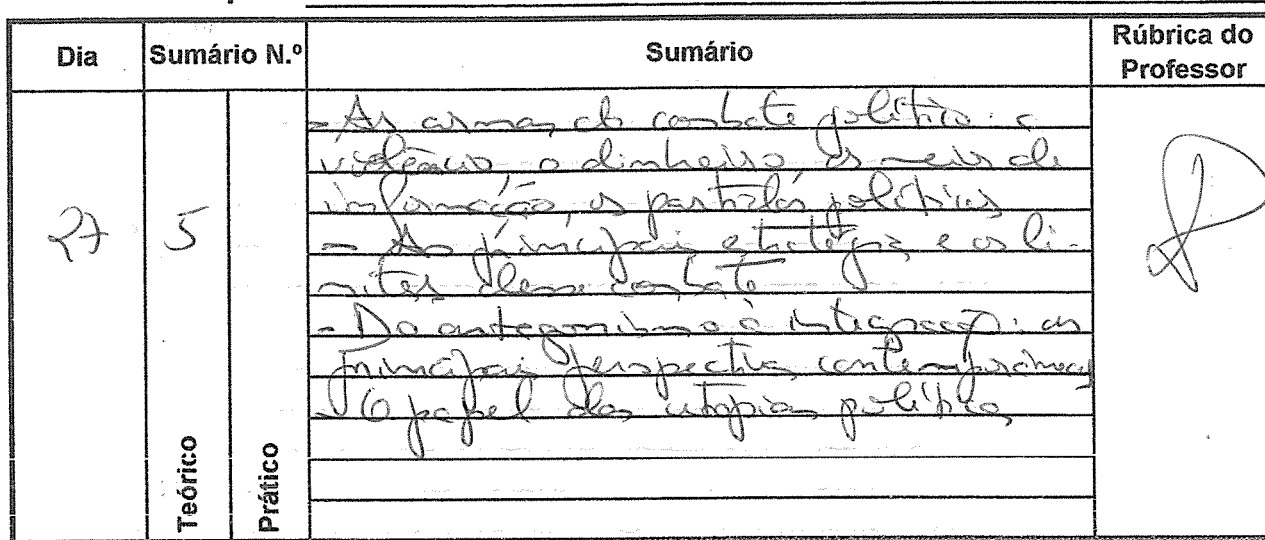 Dia Sumário N.º Sumário Rúbrica do Professor
27 5
Teórico Prático
- As armas do combate político: a
violência o dinheiro os meios de
informação, os partidos políticos
- As principais estratégias e os li-
mites desse combate
- Do antagonismo à integração: as
principais perspectivas contemporâneas
- O papel das utopias políticas